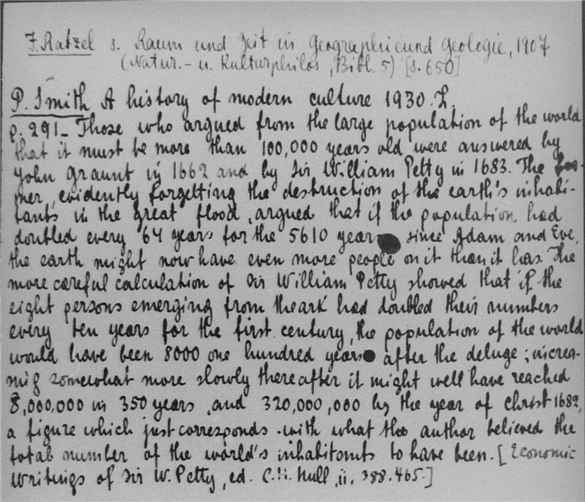 F. Ratzel s. Raum und Zeit in Geographie und Geologie, 1907
(Natur.- u. Kulturphilos, Bibl. 5) [s. 650]
P. Smith A history of modern culture 1930. I,
p. 291_ Those who argued from the large population of the world
that it must be more than 100,000 years old were answered by
John Graunt in 1662 and by Sir William Petty in 1683. The for-
mer, evidently forgetting the destruction of the earth's inhabi-
tants in the great flood, argued that if the population had
doubled every 64 years for the 5610 years since Adam and Eve,
the earth might now have even more people on it than it has. The
more careful calculation of Sir William Petty showed that if the
eight persons emerging from the ark had doubled their numbers
every ten years for the first century, the population of the world
would have been 8000 one hundred years after the deluge; increa-
sing somewhat more slowly thereafter it might well have reached
8,000,000 in 350 years, and 320,000,000 by the year of Christ 1682,
a figure which just corresponds with what the author believed the
total number of the world's inhabitants to have been. [Economic
Writings of Sir W. Petty, ed. C. H. Hull, ii, 388. 465.]